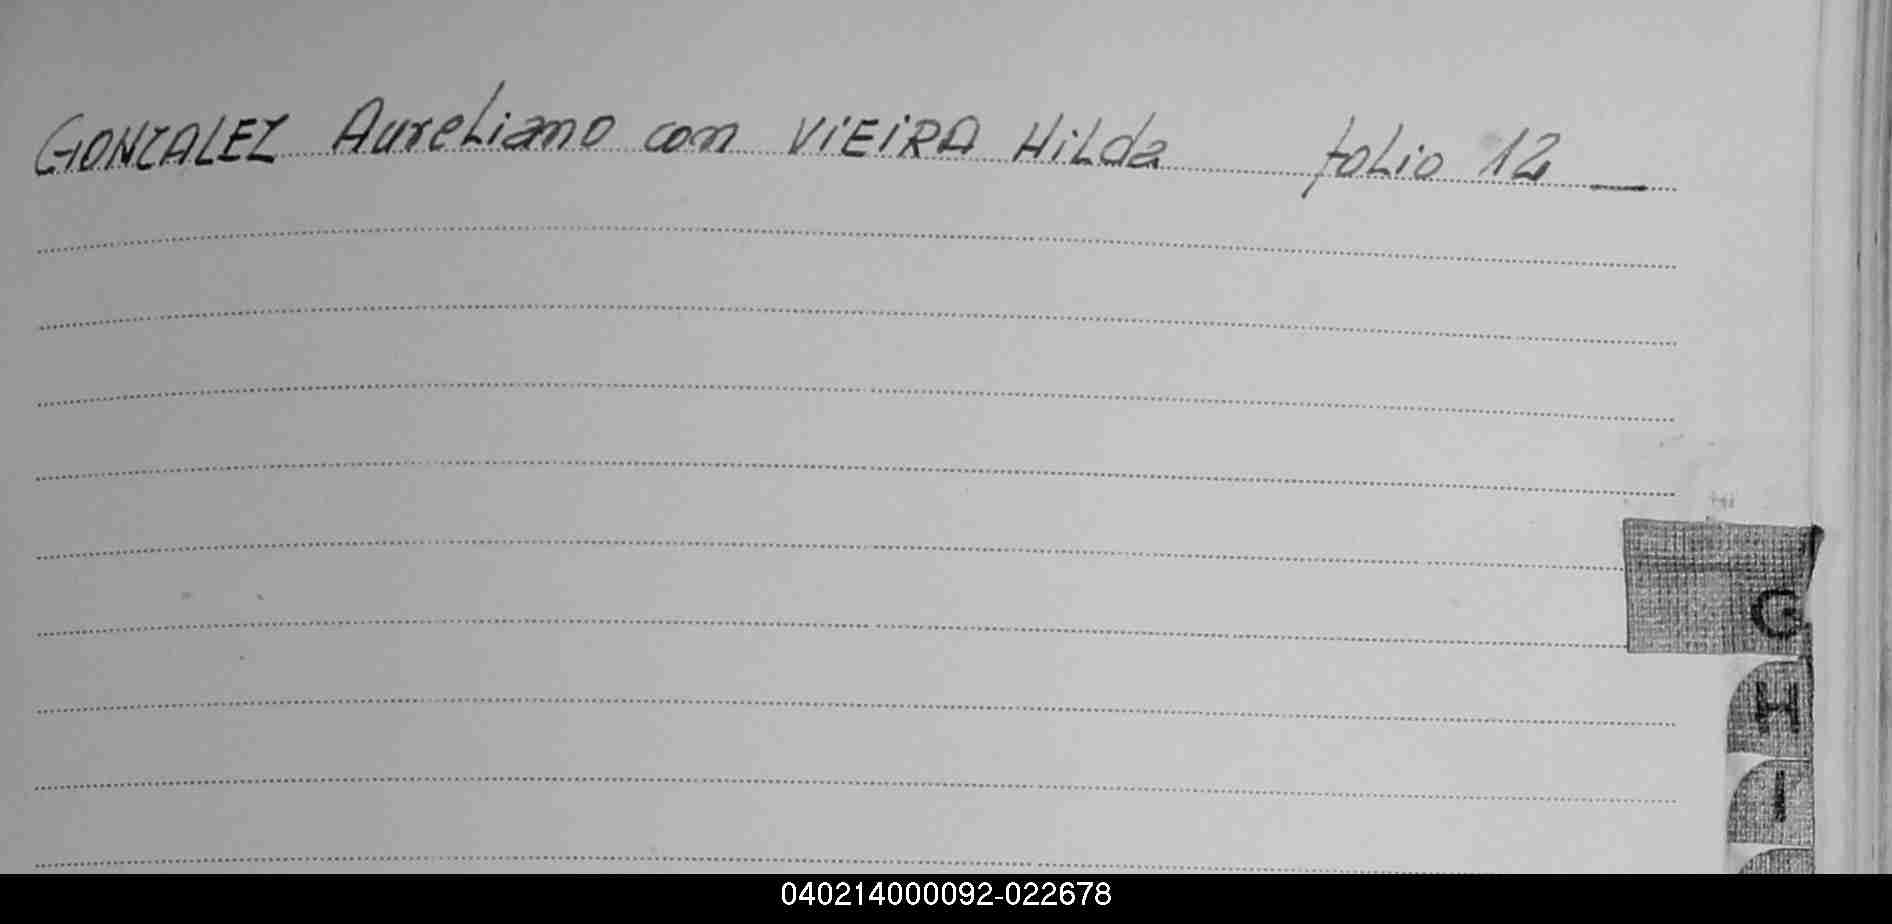 GONZALEZ Aureliano con VIEIRA Hilda folio 12 _
G
H
I
040214000092-022678